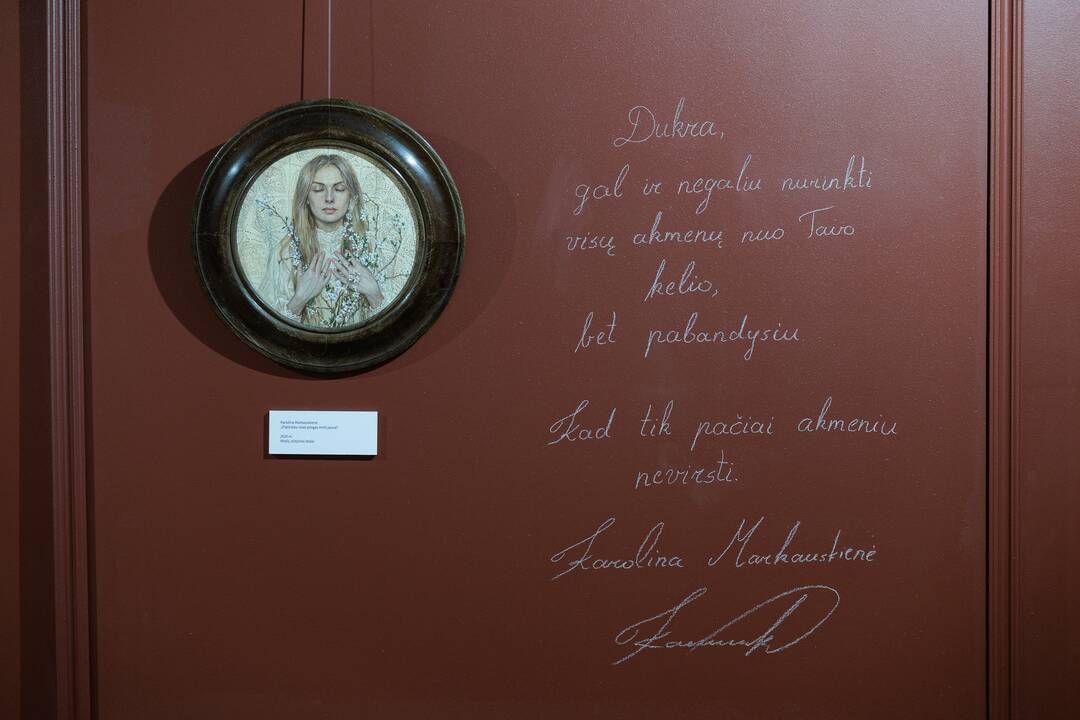 Dukra,
gal ir negaliu nurinkti
visų akmenų nuo Tavo
kelio,
bet pabandysiu.
Kad tik pačiai akmeniu
nevirsti.
Karolina Markauskienė
Karolina Markauskienė
2020 m.